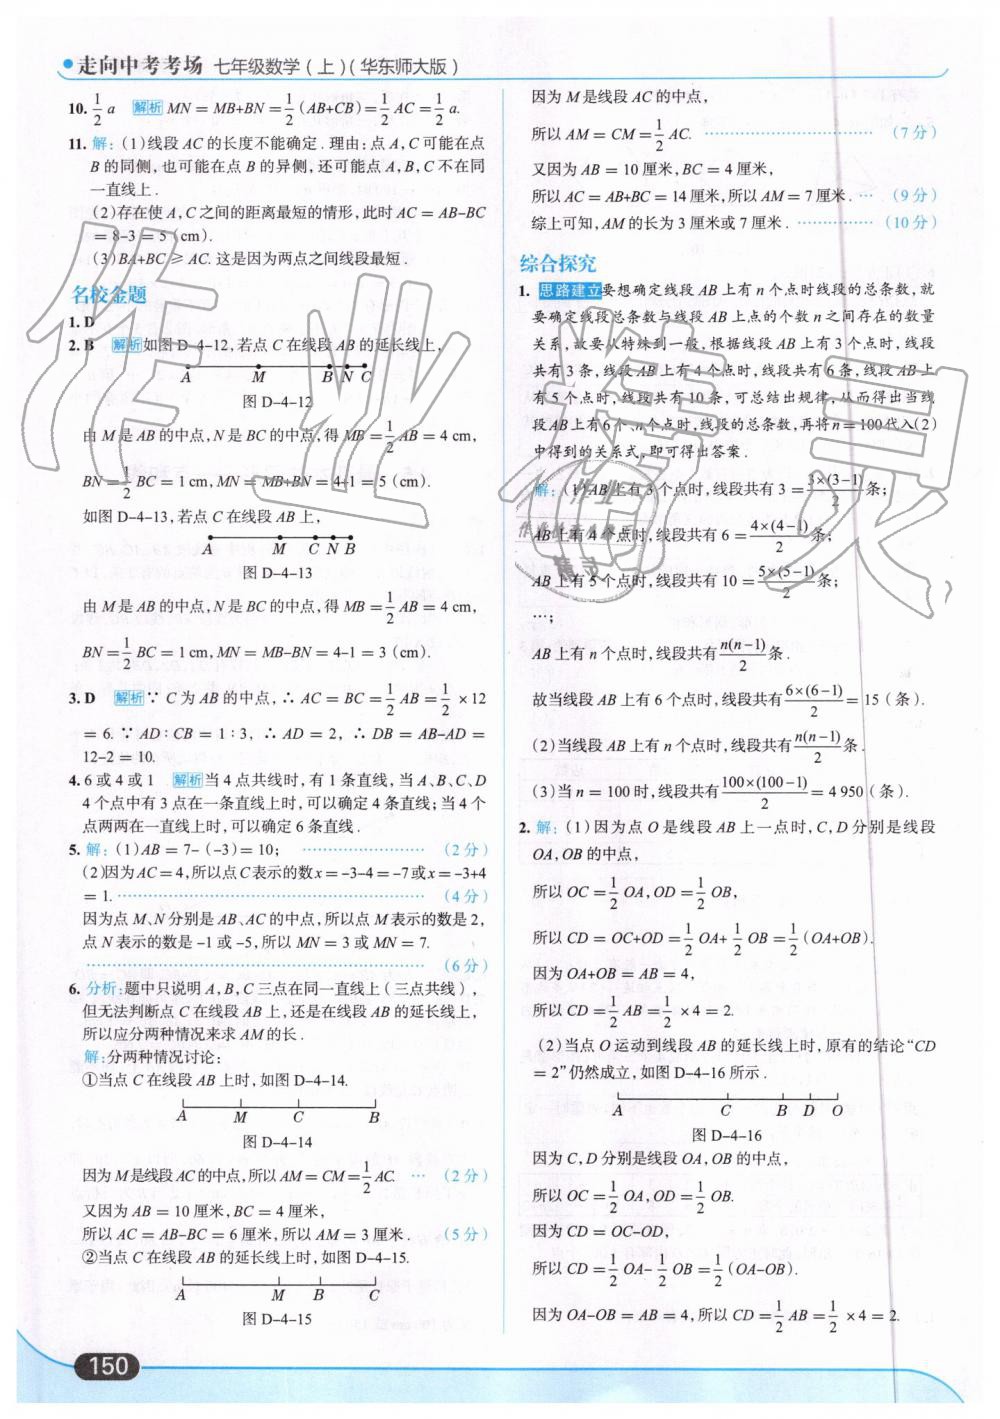 走向中考考场 七年级数学(上)(华东师大版)
10. 1/2 a 解析 MN = MB+BN = 1/2 (AB+CB) = 1/2 AC = 1/2 a.
11. 解:(1)线段 AC 的长度不能确定. 理由:点 A,C 可能在点
B 的同侧,也可能在点 B 的异侧,还可能点 A,B,C 不在同
一直线上.
(2)存在使 A,C 之间的距离最短的情形,此时 AC = AB-BC
= 8-3 = 5 (cm).
(3) BA+BC ≥ AC. 这是因为两点之间线段最短.
名校金题
1. D
2. B 解析 如图 D-4-12,若点 C 在线段 AB 的延长线上,
A M B N C
图 D-4-12
由 M 是 AB 的中点,N 是 BC 的中点,得 MB = 1/2 AB = 4 cm,
BN = 1/2 BC = 1 cm, MN = MB+BN = 4+1 = 5 (cm).
如图 D-4-13,若点 C 在线段 AB 上,
A M C N B
图 D-4-13
由 M 是 AB 的中点,N 是 BC 的中点,得 MB = 1/2 AB = 4 cm,
BN = 1/2 BC = 1 cm, MN = MB-BN = 4-1 = 3 (cm).
3. D 解析 ∵ C 为 AB 的中点,∴ AC = BC = 1/2 AB = 1/2 ×12
= 6. ∵ AD∶CB = 1∶3, ∴ AD = 2, ∴ DB = AB-AD =
12-2 = 10.
4. 6 或 4 或 1 解析 当 4 点共线时,有 1 条直线,当 A、B、C、D
4 个点中有 3 点在一条直线上时,可以确定 4 条直线;当 4 个
点两两在一直线上时,可以确定 6 条直线.
5. 解:(1)AB = 7-(-3) = 10; …… (2 分)
(2)因为AC = 4,所以点C表示的数x = -3-4 = -7或x = -3+4
= 1. …… (4 分)
因为点 M、N 分别是 AB、AC 的中点,所以点 M 表示的数是 2,
点 N 表示的数是 -1 或 -5,所以 MN = 3 或 MN = 7.
…… (6 分)
6. 分析:题中只说明 A,B,C 三点在同一直线上(三点共线),
但无法判断点 C 在线段 AB 上,还是在线段 AB 的延长线上,
所以应分两种情况来求 AM 的长.
解:分两种情况讨论:
①当点 C 在线段 AB 上时,如图 D-4-14.
A M C B
图 D-4-14
因为 M 是线段 AC 的中点,所以 AM = CM = 1/2 AC. … (2 分)
又因为 AB = 10 厘米,BC = 4 厘米,
所以 AC = AB-BC = 6 厘米,所以 AM = 3 厘米. (5 分)
②当点 C 在线段 AB 的延长线上时,如图 D-4-15.
A M B C
图 D-4-15
因为 M 是线段 AC 的中点,
所以 AM = CM = 1/2 AC. …… (7 分)
又因为 AB = 10 厘米,BC = 4 厘米,
所以 AC = AB+BC = 14 厘米,所以 AM = 7 厘米. … (9 分)
综上可知,AM 的长为 3 厘米或 7 厘米. …… (10 分)
综合探究
1. 思路建立 要想确定线段 AB 上有 n 个点时线段的总条数,就
要确定线段总条数与线段 AB 上点的个数 n 之间存在的数量
关系,故要从特殊到一般,根据线段 AB 上有 3 个点时,线段
共有 3 条,线段 AB 上有 4 个点时,线段共有 6 条,线段 AB 上
有 5 个点时,线段共有 10 条,可总结出规律,从而得出当线
段AB上有6个、n个点时,线段的总条数,再将n = 100代入(2)
中得到的关系式,即可得出答案.
解:(1)AB 上有 3 个点时,线段共有 3 = 3×(3-1)/2 条;
AB 上有 4 个点时,线段共有 6 = 4×(4-1)/2 条;
AB 上有 5 个点时,线段共有 10 = 5×(5-1)/2 条;
…;
AB 上有 n 个点时,线段共有 n(n-1)/2 条.
故当线段 AB 上有 6 个点时,线段共有 6×(6-1)/2 = 15 (条).
(2)当线段 AB 上有 n 个点时,线段共有 n(n-1)/2 条.
(3)当 n = 100 时,线段共有 100×(100-1)/2 = 4 950 (条).
2. 解:(1)因为点 O 是线段 AB 上一点时,C,D 分别是线段
OA,OB 的中点,
所以 OC = 1/2 OA, OD = 1/2 OB,
所以 CD = OC+OD = 1/2 OA+ 1/2 OB = 1/2 (OA+OB).
因为 OA+OB = AB = 4,
所以 CD = 1/2 AB = 1/2 ×4 = 2.
(2)当点 O 运动到线段 AB 的延长线上时,原有的结论“CD
= 2”仍然成立,如图 D-4-16 所示.
A C B D O
图 D-4-16
因为 C,D 分别是线段 OA,OB 的中点,
所以 OC = 1/2 OA, OD = 1/2 OB.
因为 CD = OC-OD,
所以 CD = 1/2 OA- 1/2 OB = 1/2 (OA-OB).
因为 OA-OB = AB = 4,所以 CD = 1/2 AB = 1/2 ×4 = 2.
150
作业精灵